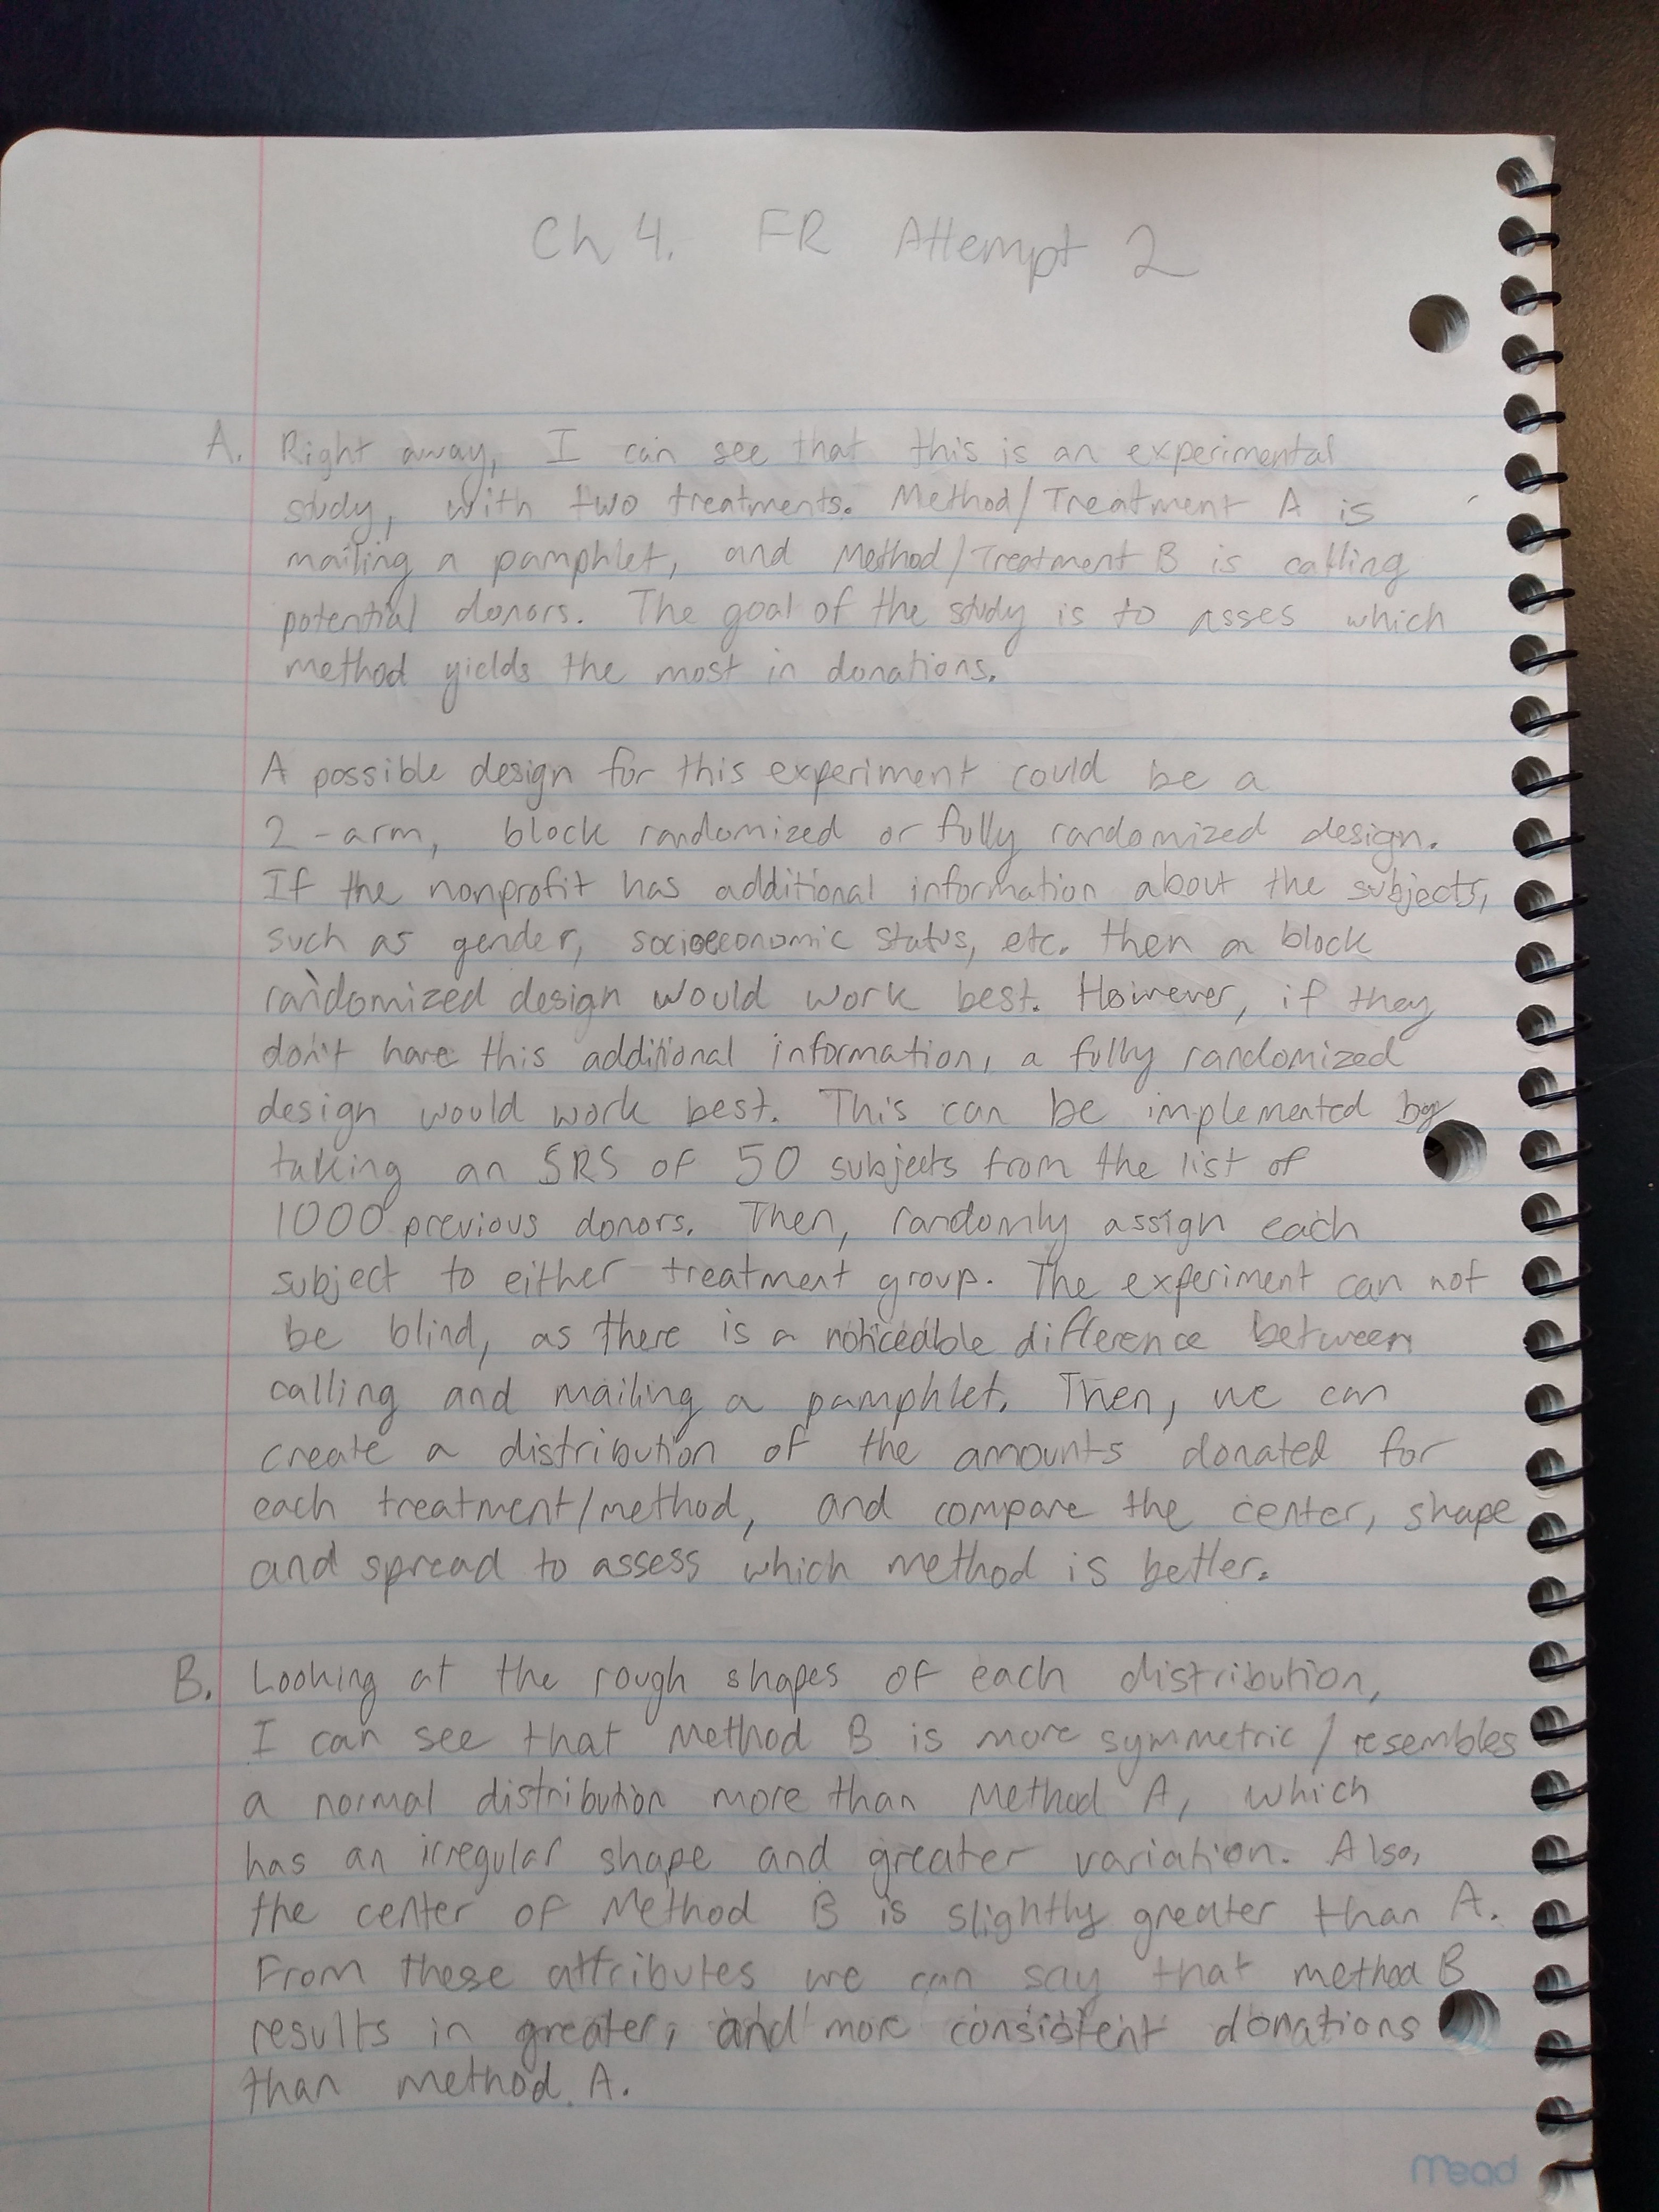 Ch 4. FR Attempt 2
A. Right away, I can see that this is an experimental
study, with two treatments. Method/Treatment A is
mailing a pamphlet, and Method/Treatment B is calling
potential donors. The goal of the study is to asses which
method yields the most in donations.
A possible design for this experiment could be a
2-arm, block randomized or fully randomized design.
If the nonprofit has additional information about the subjects,
such as gender, socioeconomic status, etc. then a block
randomized design would work best. However, if they
don't have this additional information, a fully randomized
design would work best. This can be implemented by
taking an SRS of 50 subjects from the list of
1000 previous donors. Then, randomly assign each
subject to either treatment group. The experiment can not
be blind, as there is a noticeable difference between
calling and mailing a pamphlet. Then, we can
create a distribution of the amounts donated for
each treatment/method, and compare the center, shape
and spread to assess which method is better.
B. Looking at the rough shapes of each distribution,
I can see that Method B is more symmetric/resembles
a normal distribution more than Method A, which
has an irregular shape and greater variation. Also,
the center of Method B is slightly greater than A.
From these attributes we can say that method B
results in greater, and more consistent donations
than method A.
Mead